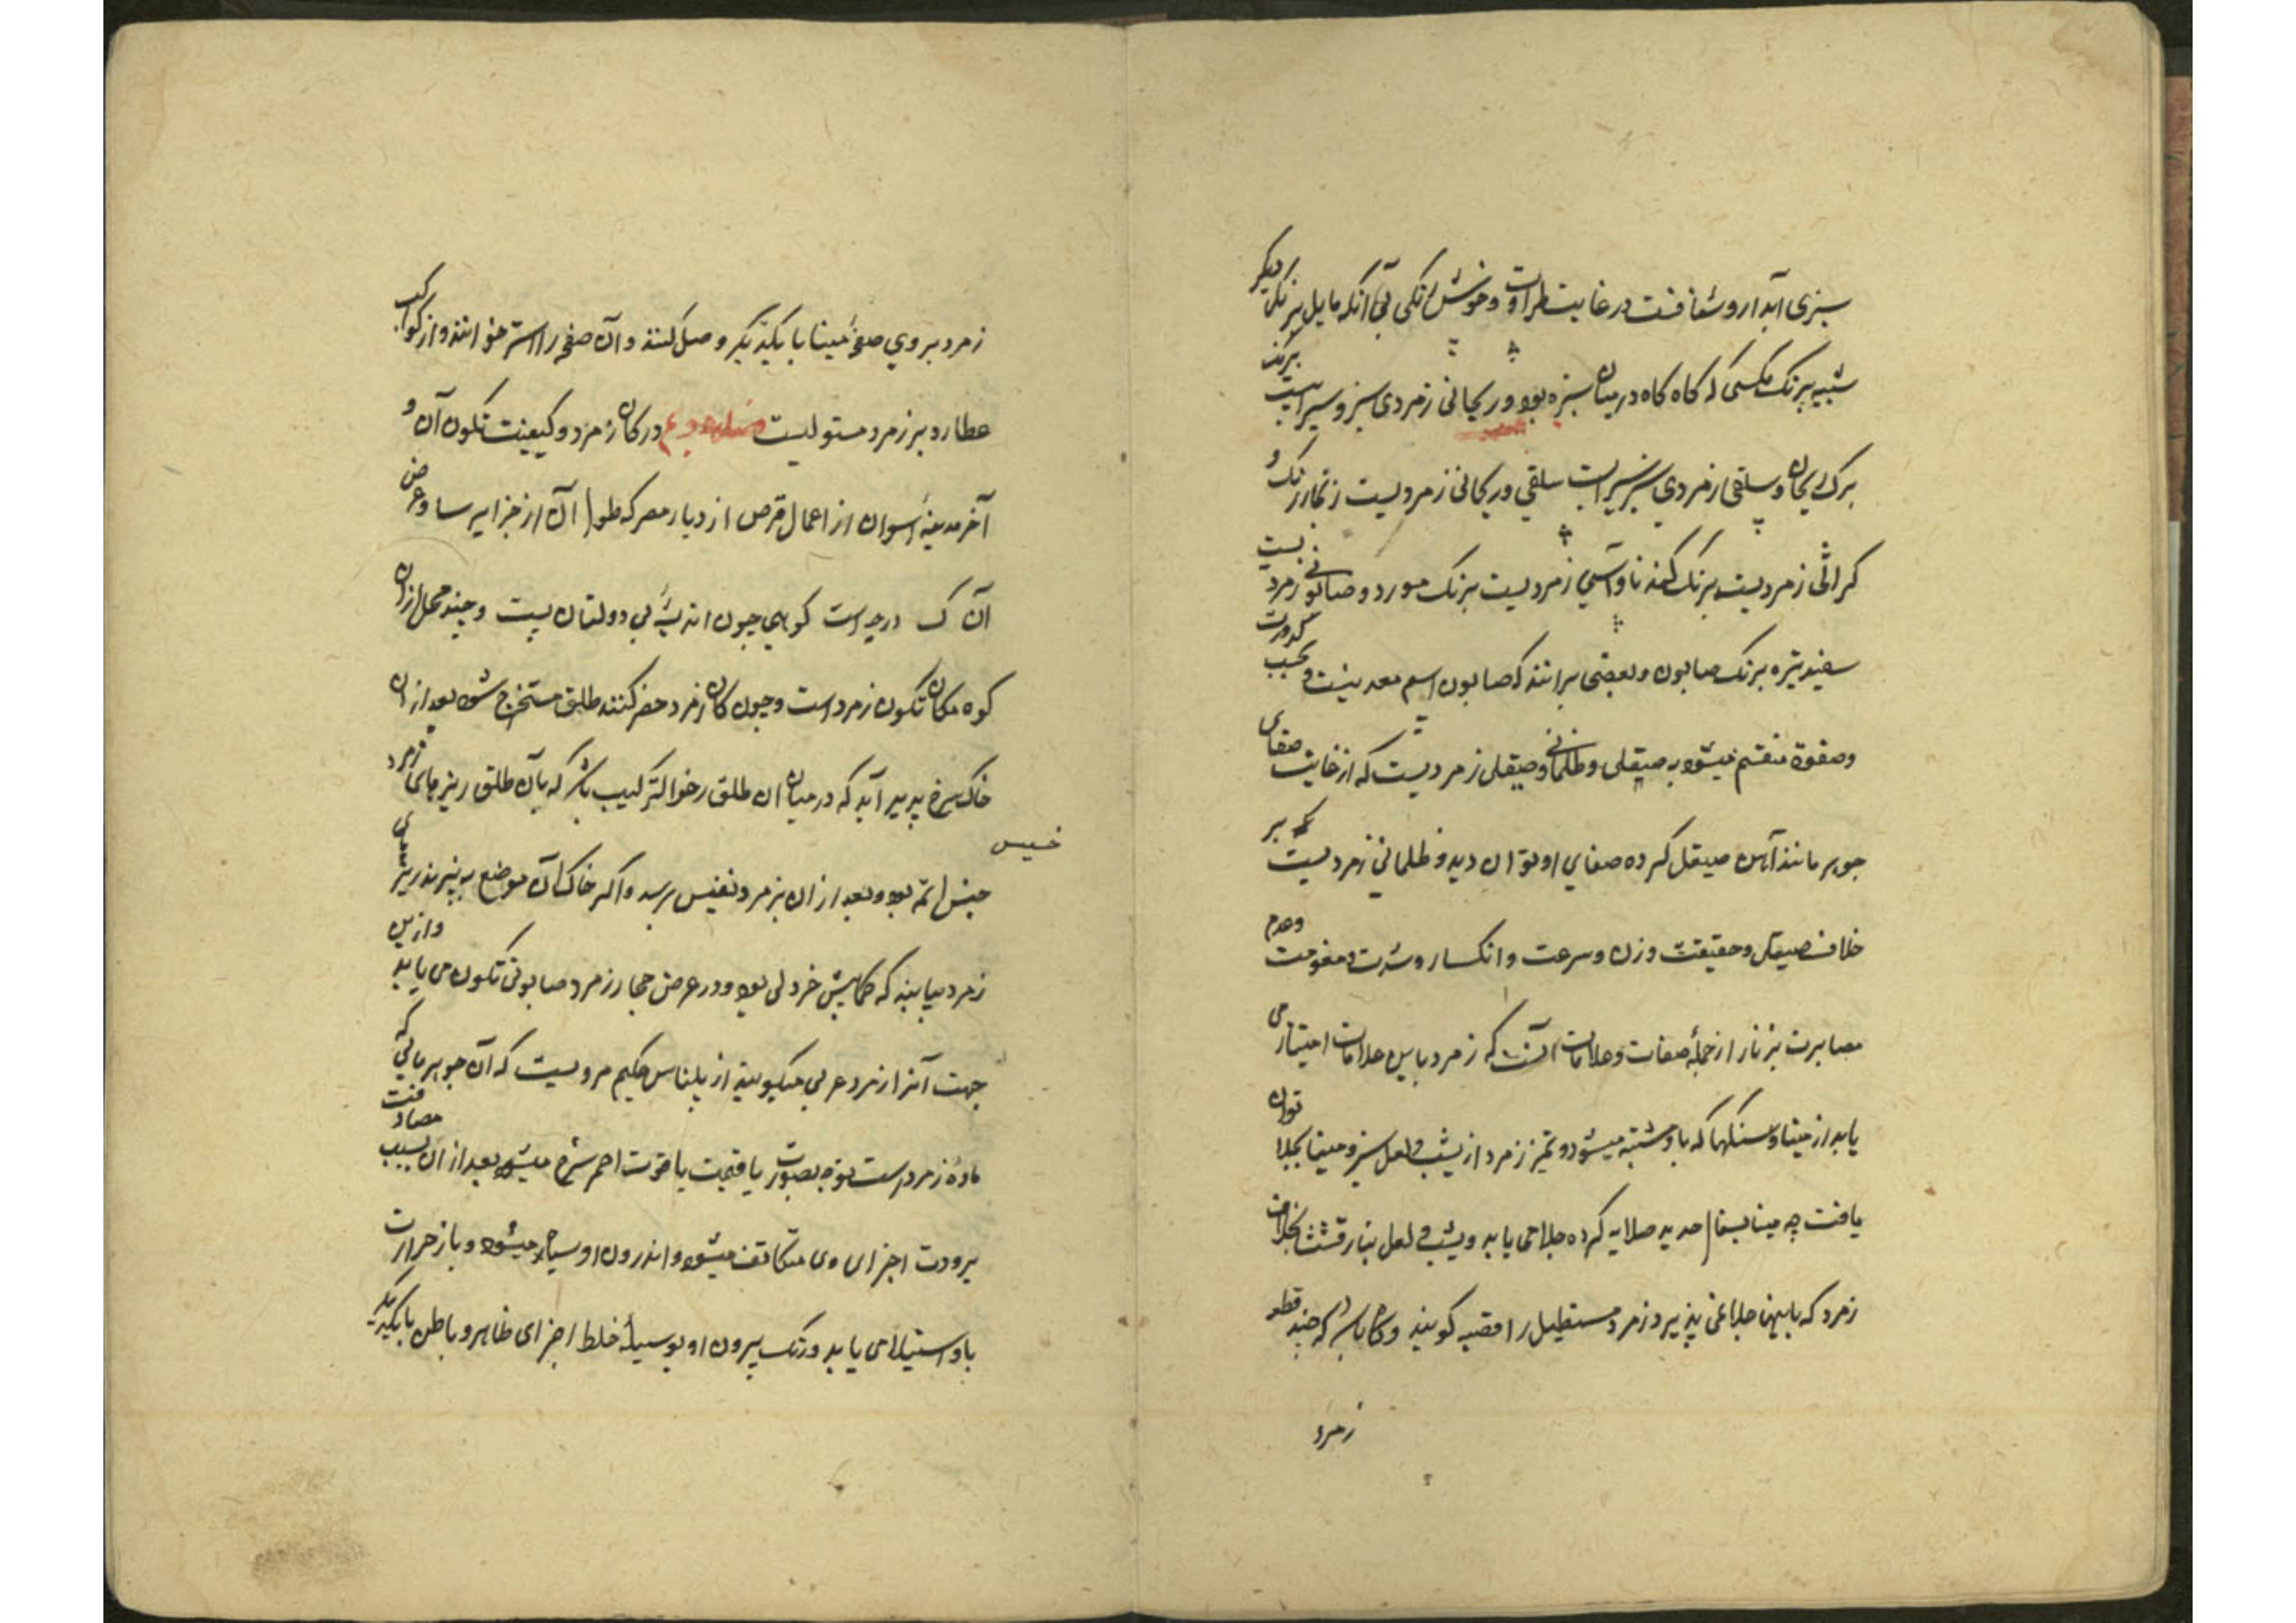 سبزی آبدار و شفافست در غایت طراوت و خوش رنگی بی آنکه مایل برنکی دیکر
شبیه برنک مکسی که کاه کاه در میان سبزه بود و ریحانی زمردی سبز و سیرابست برنک
برک ریحان و سلقی زمردی سبز سیرابست سلقی و ریحانی زمردیست زنکار رنک و
کراثی زمردیست برنک کندنا و آسی زمردیست برنک مورد و صابونی زمردیست
سفید تیره برنک صابون و بعضی برانند که صابون اسم معدنیست و بحسب کدورت
و صفوة منقسم میشود به صیقلی و ظلمانی و صیقلی زمردیست که از غایت صفای
جوهر مانند آهن صیقل کرده صفای او توان دید و ظلمانی زمردیست که بر
خلاف صیقلی و حقیقت وزن و سرعت و انکسار و شدت و مقومت وعدم
مصابرت بر نار از جمله صفات و علامات آنست که زمرد باین علامات امتیاز می
یابد از مینا و سنکها که باو مشتبه میشود و تمیز زمرد از یشب و لعل سبز و مینا بجلا توان
یافت چه مینا بسفا حدید صلایه کرده جلا می یابد و یشب و لعل بنار قشیشا بخلاف
زمرد که باینها جلا نمی پذیرد و زمرد مستطیل را قصبه کویند و کاه باشد که چند قطعه
زمرد
زمرد بر روی صفحهٔ مینا با یکدیکر وصل کنند و آن صفحه را استر خوانند و از کواکب
عطارد بر زمرد مستولیست در کان زمرد و کیفیت تکون آن و
آخر مدینهٔ اسوان از اعمال قرص از دیار مصر که طول آن از جزایر سا و عرض
آن ک درجه است کوهی چون اندیشهٔ بی دولتان پست و چند محل ازان
کوه مکان تکون زمرد است و چون کان زمرد حفر کنند طلق مستخرج شود بعد از ان
خاک سرخ پدید آید که در میان ان طلق رخو الترکیب باشد که بآن طلق ریزهای زمرد
خسیس
جنس اتم بود و بعد از ان بزمرد نفیس برسد و اکر خاک آن موضع به پزند ریزهای
زمرد بیابند که کمابیش خردلی بود و در عرض حجار زمرد صابونی تکون می یابد وازین
جهت آنرا زمرد عربی میکویند از بلیناس حکیم مرویست که آن جوهر مائی که
مادهٔ زمرد است توجه بصورت یافتیت یاقوت احمر سرخ میشود بعد از ان بسبب مصادفت
برودت اجزای وی متکاثف میشود و اندرون او سیاه میشود و باز حرارت
باو استیلا می یابد و رنک بیرون او بوسیلهٔ خلط اجزای ظاهر و باطن با یکدیکر